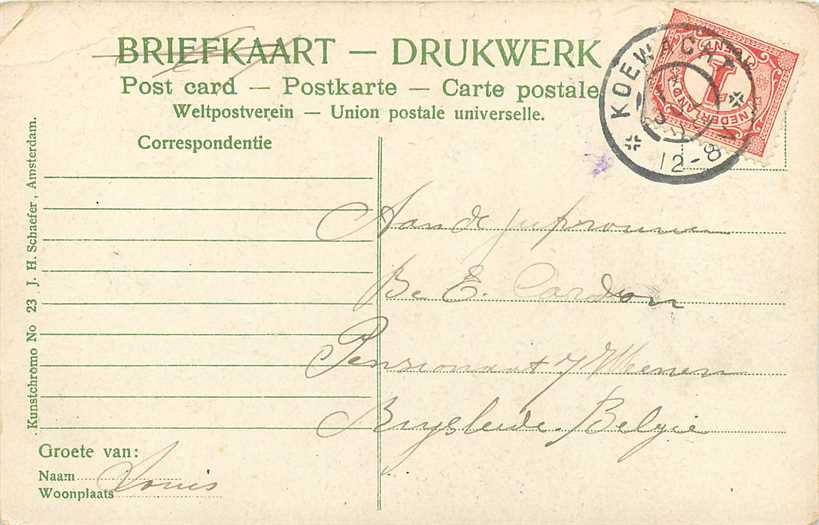 BRIEFKAART — DRUKWERK
Post card — Postkarte — Carte postale
Weltpostverein — Union postale universelle.
Correspondentie
KOEWACHT
12-8
NEDERLAND
1
Aan de jufvrouw
Be E. Cardon
Pensionnat
Belgie
Groete van:
Naam Louis
Woonplaats
Kunstchromo No 23 J. H. Schaefer, Amsterdam.